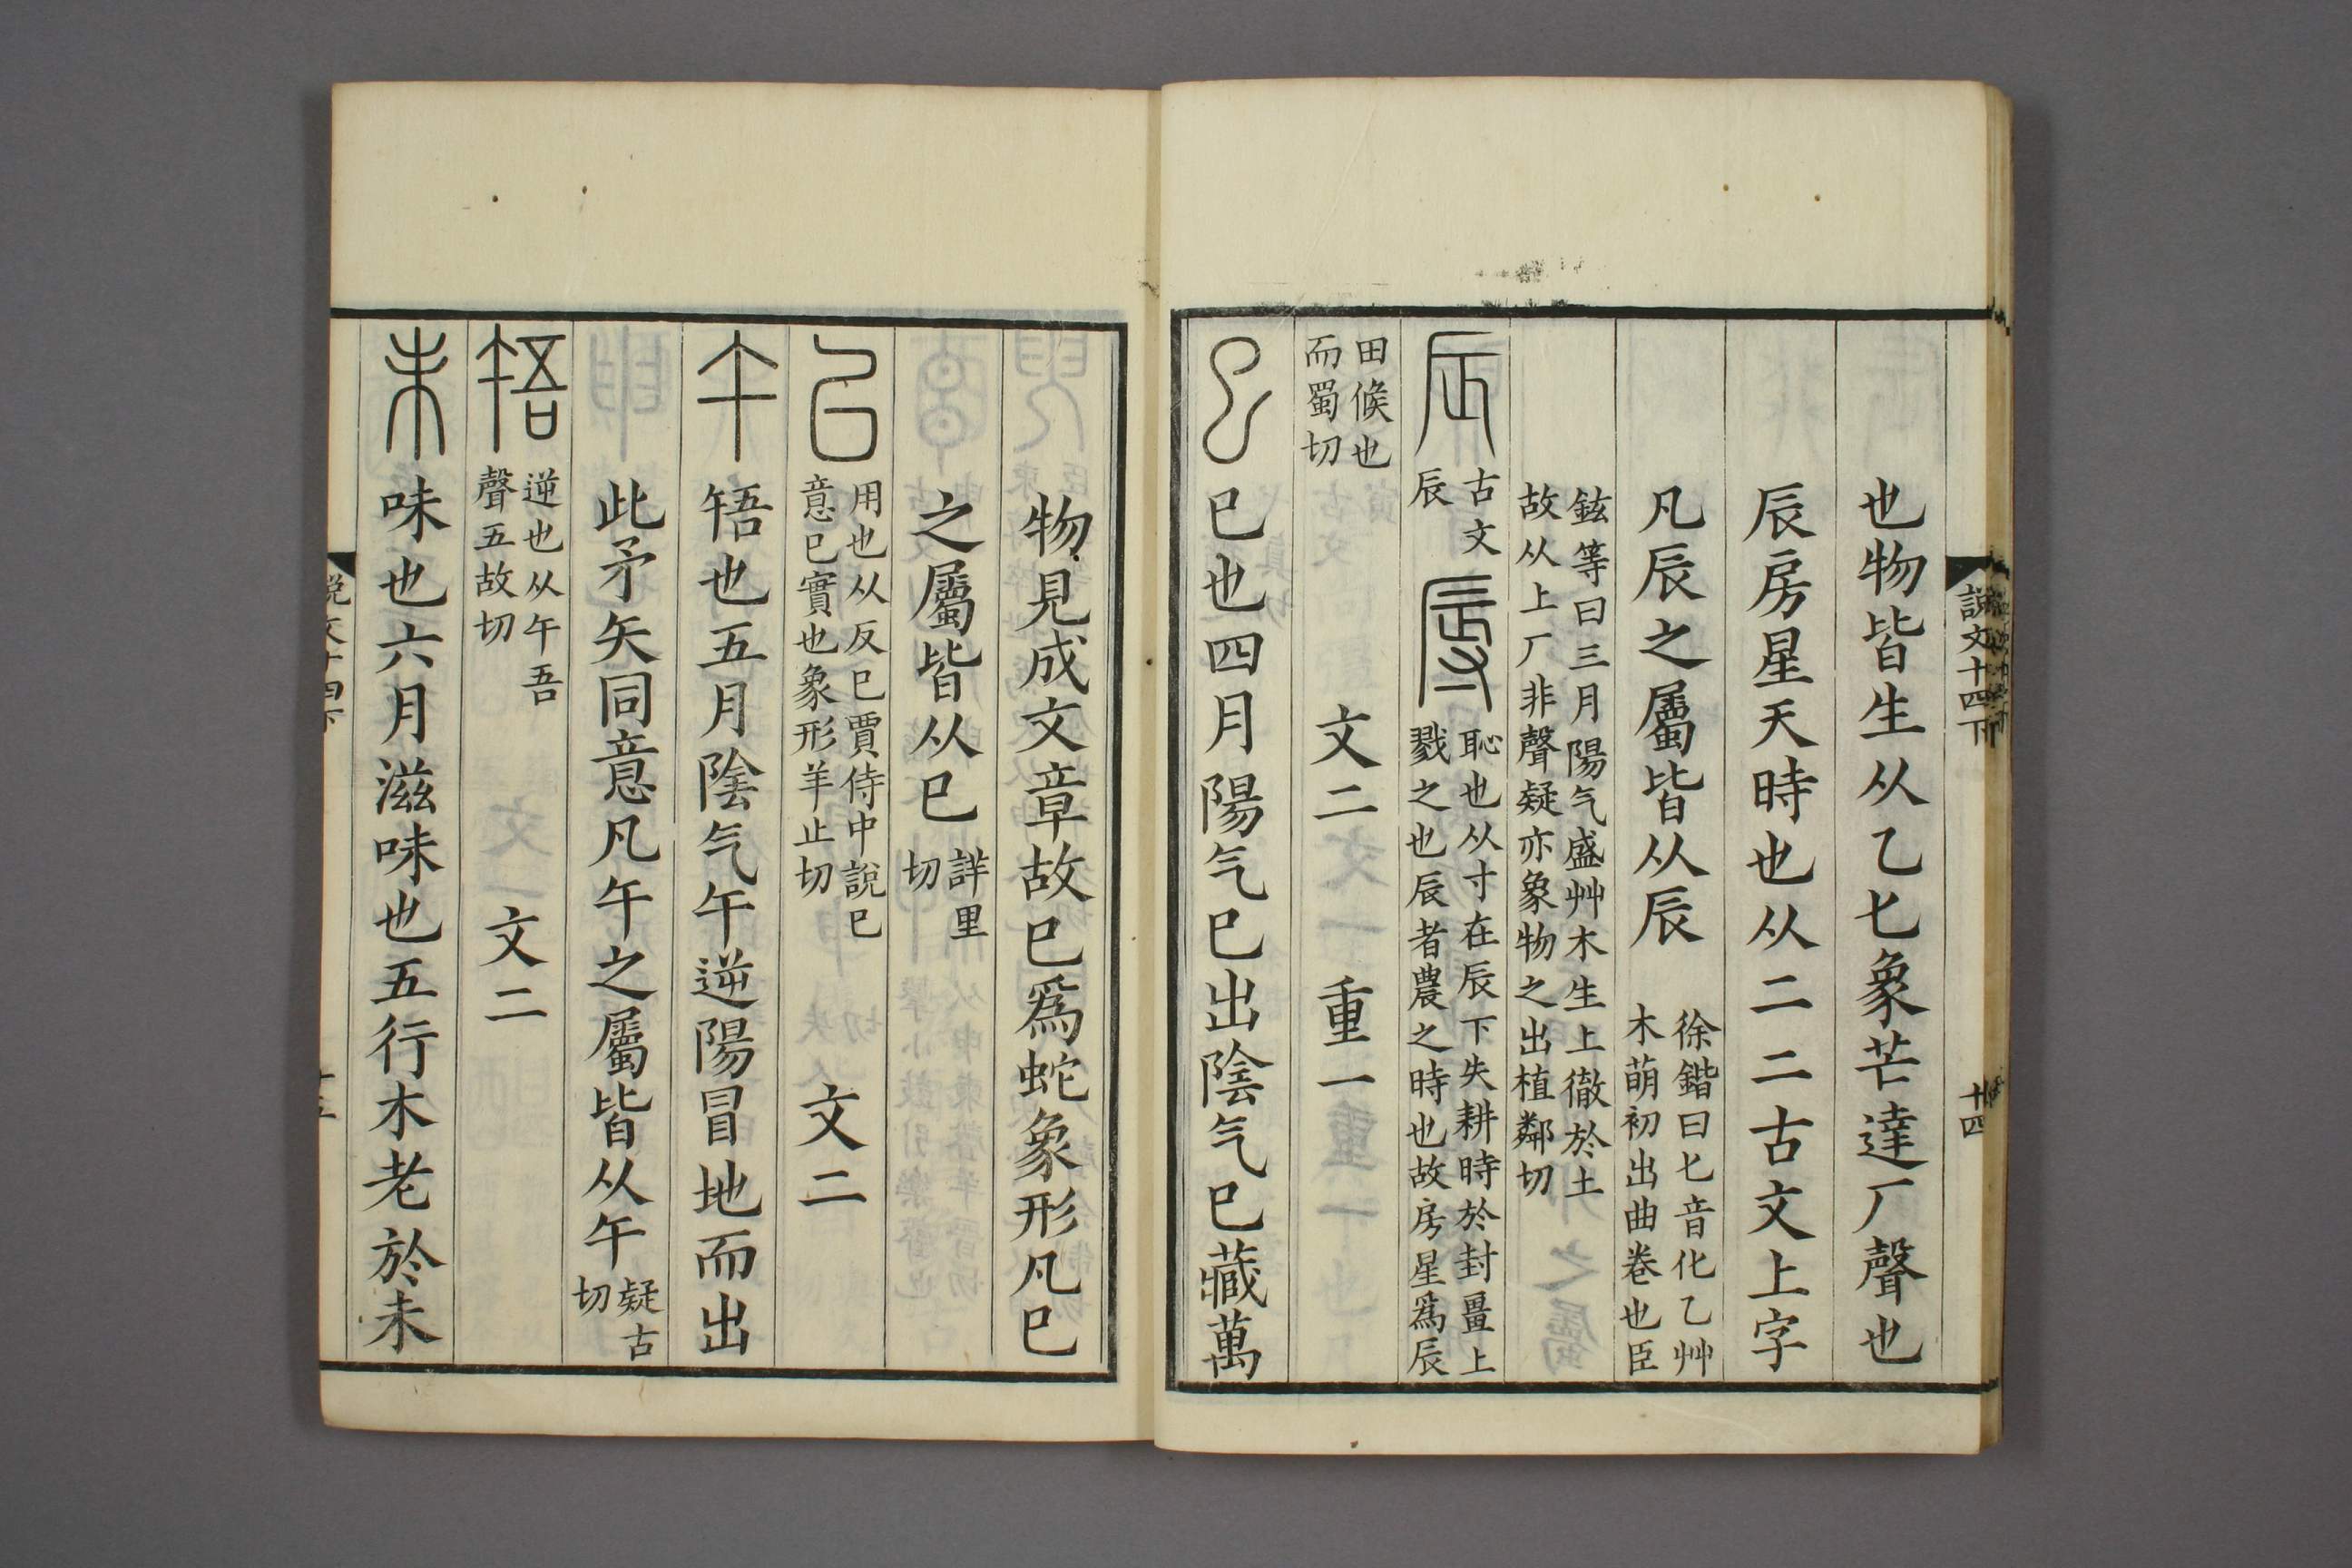 說文十四下
十四
也物皆生从乙匕象芒達厂聲也
辰房星天時也从二二古文上字
凡辰之屬皆从辰
徐鍇曰匕音化乙艸
木萌初出曲卷也臣
鉉等曰三月陽气盛艸木生上徹於土
故从上厂非聲疑亦象物之出植鄰切
辰
古文
辰
辱
恥也从寸在辰下失耕時於封畺上
戮之也辰者農之時也故房星爲辰
田候也
而蜀切
文二 重一
巳
巳也四月陽气巳出陰气巳藏萬
物見成文章故巳爲蛇象形凡巳
之屬皆从巳
詳里
切
㠯
用也从反巳賈侍中說巳
意巳實也象形羊止切
文二
午
啎也五月陰气午逆陽冒地而出
此矛矢同意凡午之屬皆从午
疑古
切
啎
逆也从午吾
聲五故切
文二
未
味也六月滋味也五行木老於未
說文十四下
十五